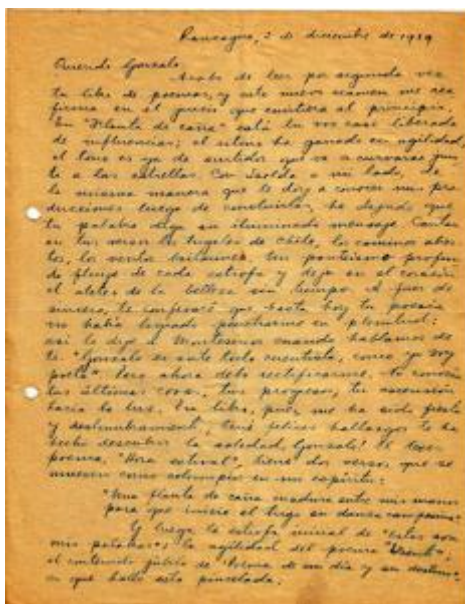 Rancagua, 2 de diciembre de 1939
Querido Gonzalo:
Acabo de leer por segunda vez
tu libro de poemas, y este nuevo examen me rea
firma en el juicio que emitiera al principio.
En "Flauta de caña" está tu voz casi liberada
de influencias; el ritmo ha ganado en agilidad,
el tono es ya de surtidor que va a curvarse jun
to a las estrellas. Con Isolda a mi lado, de
la misma manera que le doy a conocer mis pro
ducciones luego de concluirlas, he dejado que
tu palabra diga su iluminado mensaje. Cantan
en tus versos los trigales de Chile, los caminos abier
tos, los vientos bailarines. Un panteísmo profun
do fluye de cada estrofa y deja en el corazón
el aletear de la belleza sin tiempo. A fuer de
sincero, te confesaré que hasta hoy tu poesía
no había logrado penetrarme en plenitud;
así le dije a cuando hablamos de
ti: "Gonzalo es ante todo cuentista, como yo soy
poeta". Pero ahora debo rectificarme, tu
tus últimas cosas, tus progresos, tu ascensión
hacia la luz. Tu libro, pues, me ha sido fiesta
y deslumbramiento; felices hallazgos te ha
hecho descubrir la soledad, Gonzalo! El
poema, "Hora estival", tiene dos versos que se
mueven como columpio en mi espíritu:
"Una flauta de caña madura entre mis manos
para que inicie el trigo su danza campesina"
Y luego la estrofa inicial de "Estas son
mis palabras"; la agilidad del poema
el contenido júbilo de "Poema de un día y su
en que hallo esta pincelada: